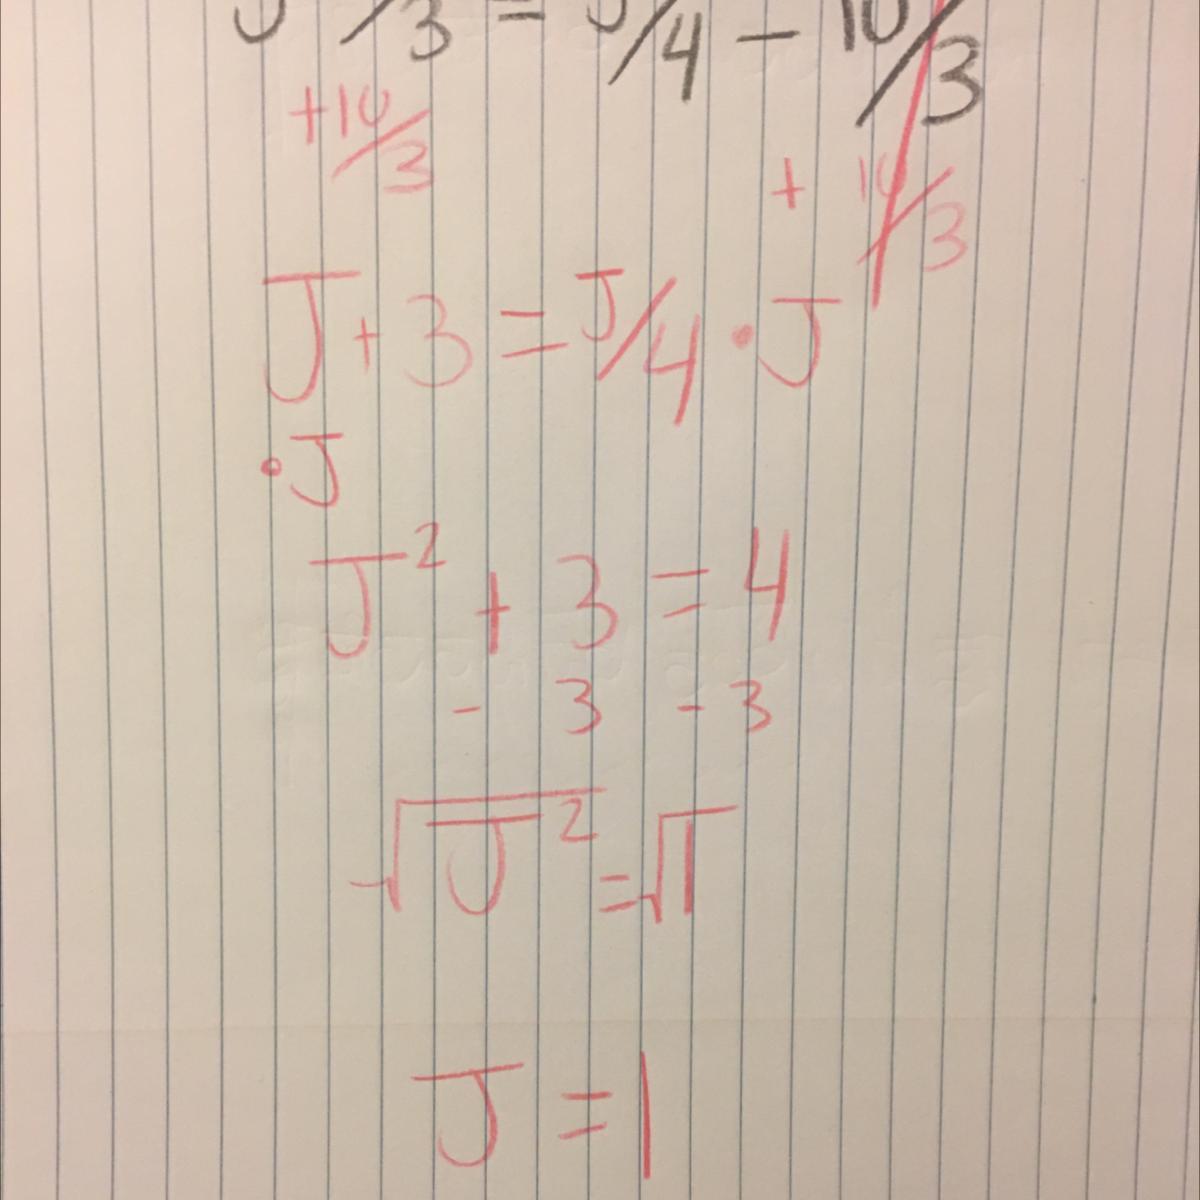 J /3 = J/4 - 10/3
+10/3 + 10/3
J + 3 = J/4 · J
· J
J² + 3 = 4
- 3 - 3
√J² = √1
J = 1